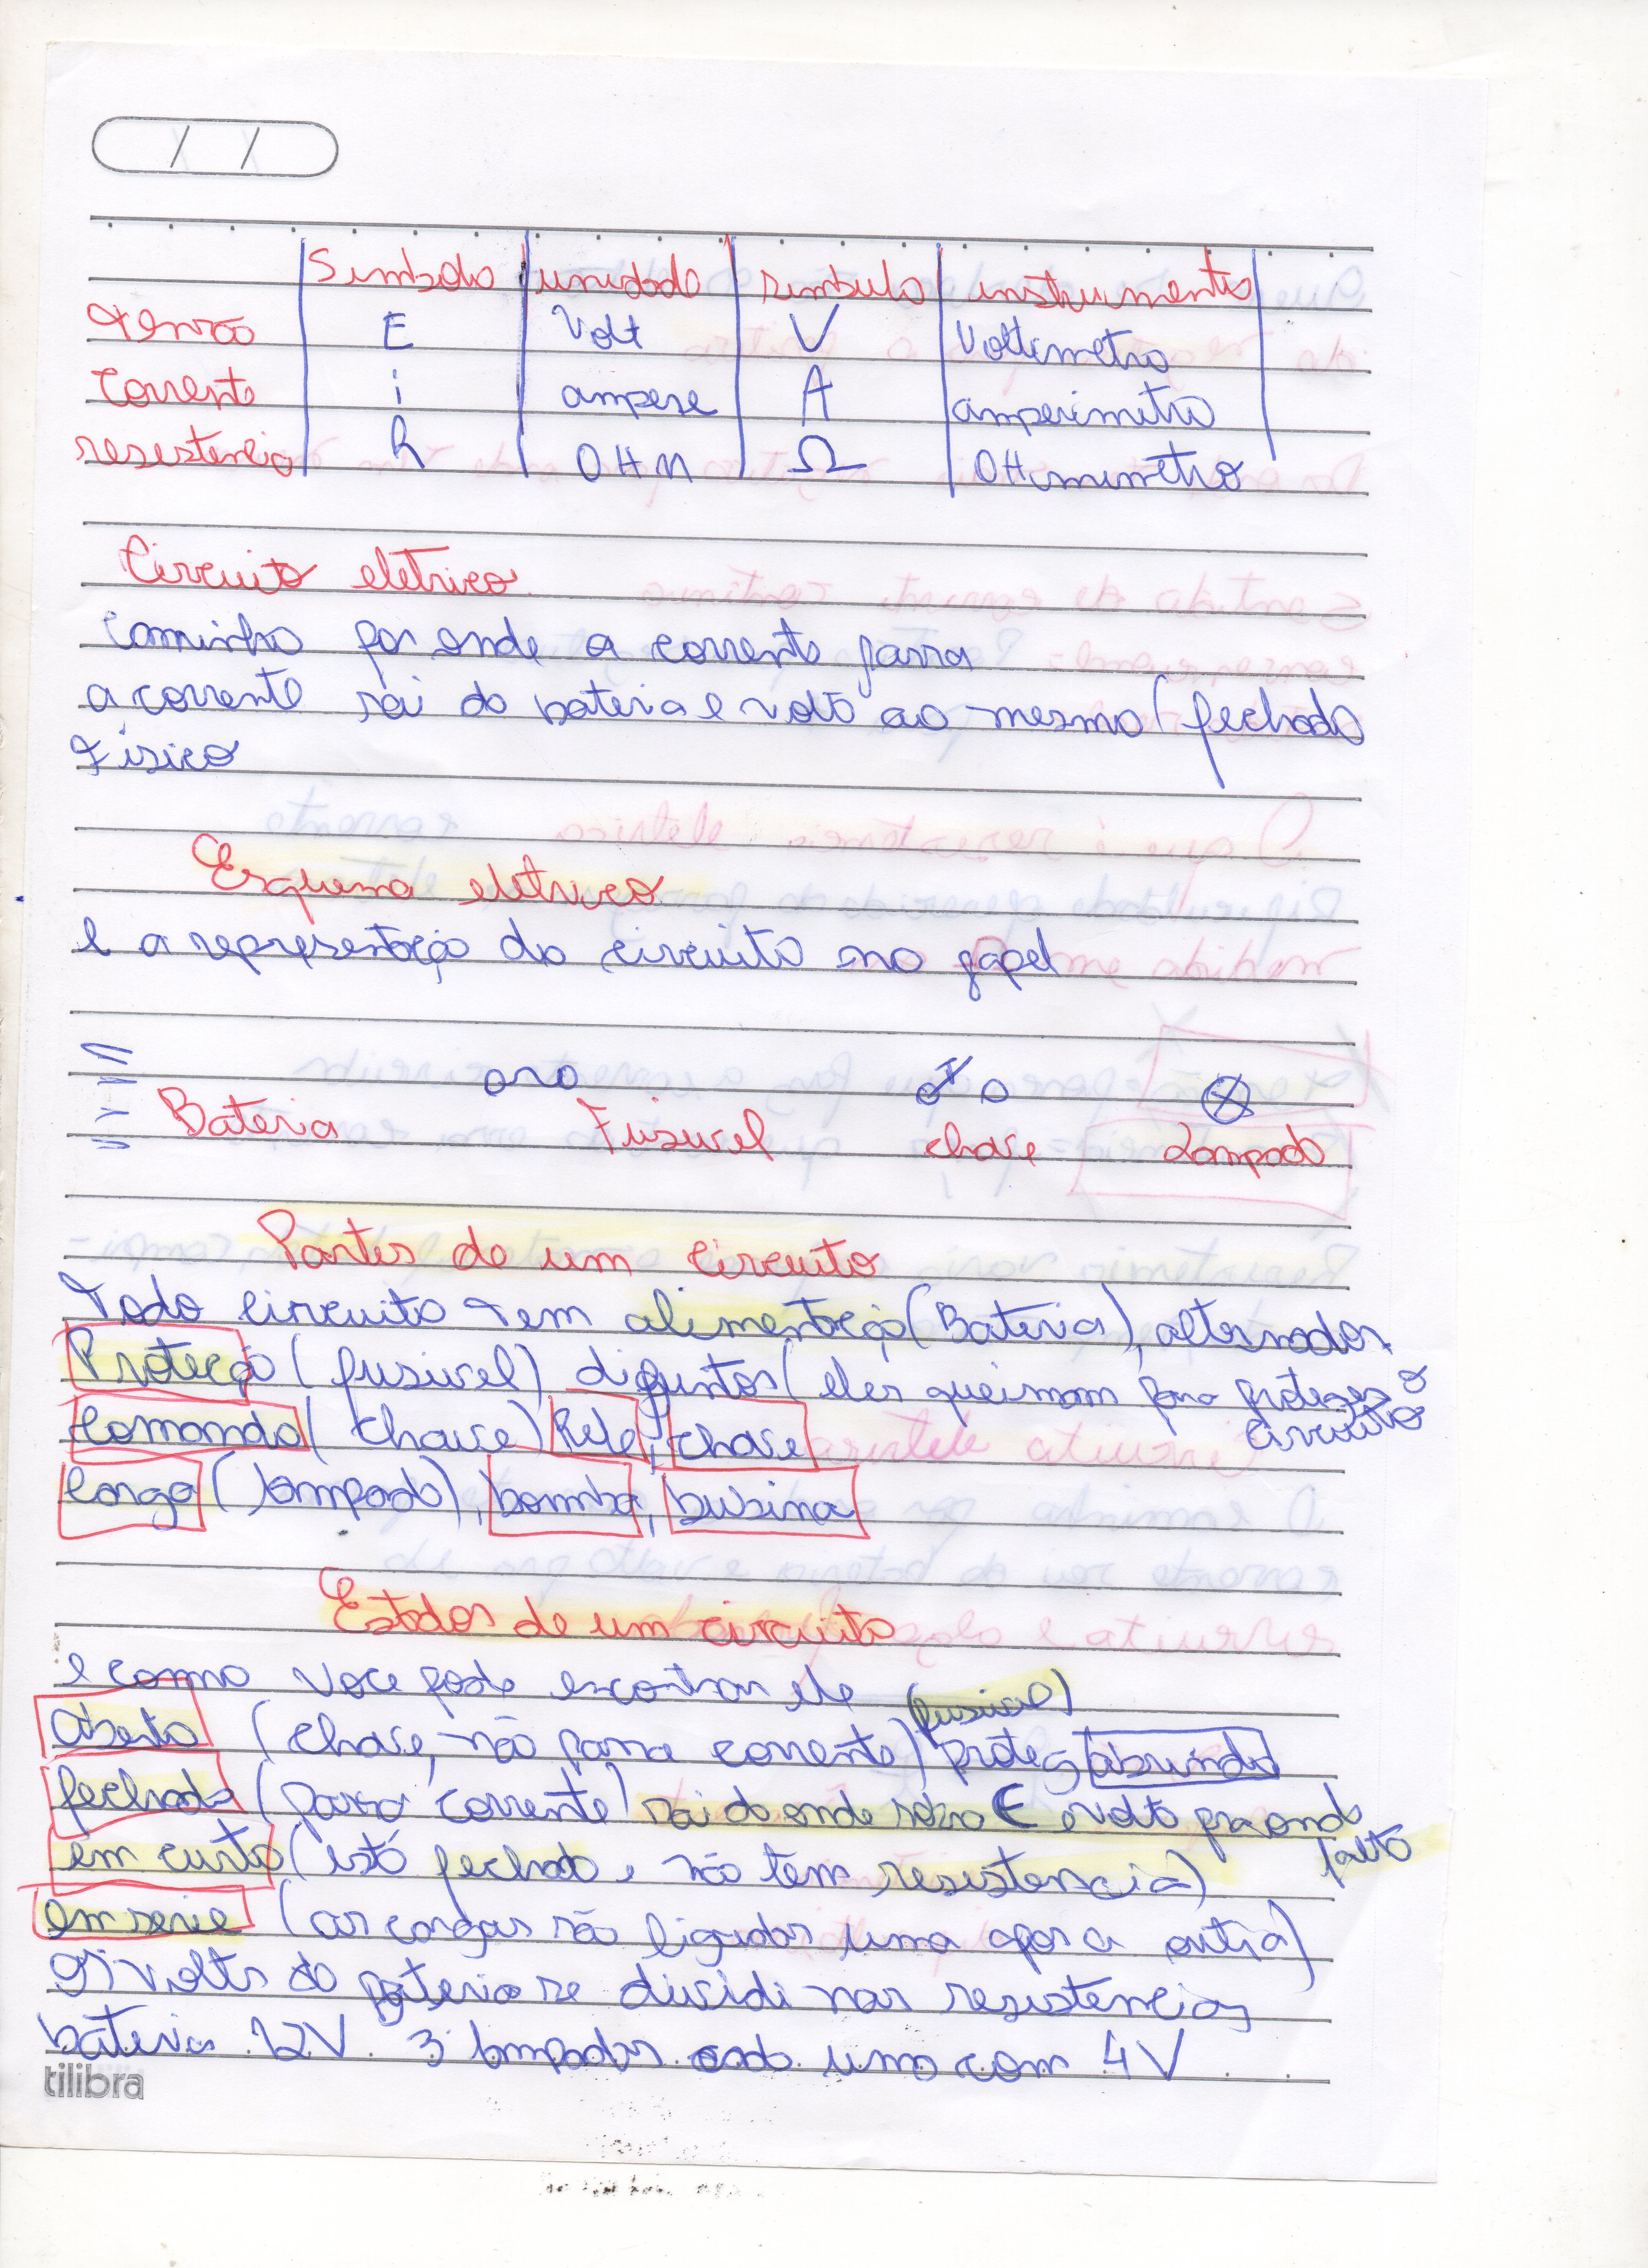 Simbolo unidade simbulo instrumento
tensão E Volt V Voltimetro
Corrente i ampere A amperimetro
resestencia R OHM Ω OHmimetro
Circuito eletrico
caminho por onde a corrente passa
a corrente sai da bateria e volta ao mesmo (fechado
Fisico
Esquema eletrico
e a representação do circuito no papel
Bateria Fusivel chave Lampada
Partes de um circuito
Todo circuito tem alimentação (Bateria), alternador.
Proteção (fusivel) (eles queimam para proteger o
circuito
Comando (chave) Rele, chave
Carga (lampada), bomba, busina
Estados de um circuito
e como voce pode encontrar ele
(fusivel)
Aberto (chave, não passa corrente) proteg abrindo
fechado (passa corrente) sai da onde sobra E e volta pra onde
falta
em curto (está fechado e não tem resistencia)
em serie (as cargas são ligadas uma apos a outra)
os volts da bateria se dividi nas resistencias
bateria 12V 3 lampadas cada uma com 4V
tilibra